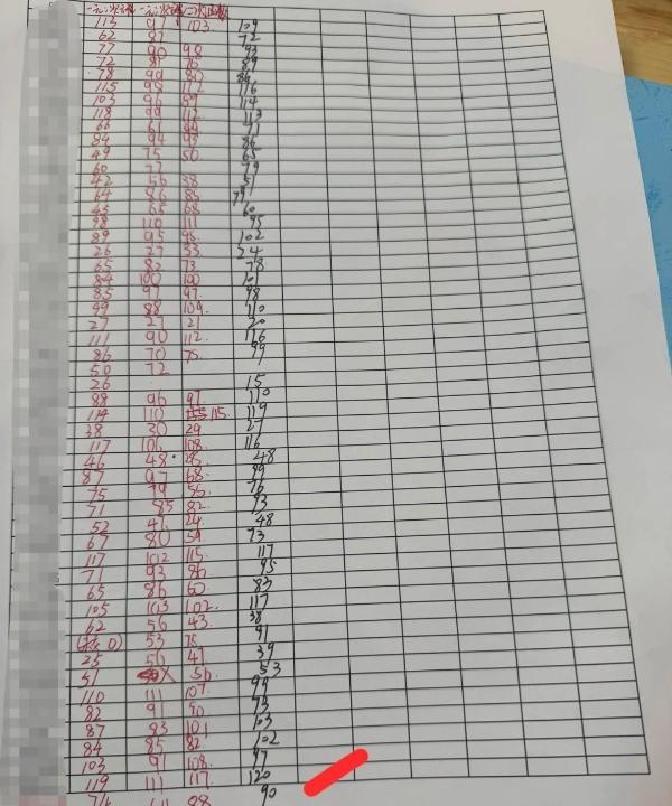 113 97 103 109
62 82 72
77 90 98 93
72 76 89
78 99 80
115 98 112 116
103 96 114
118 99 112 113
66 71
84 94 93 86
49 75 50 65
60 77 79
42 56 38 51
64 86 85 91
45 65 68 60
98 110 111 95
89 95 96 102
26 27 33 24
65 82 73 78
84 100 100 101
85 97 97 98
99 88 109 110
27 27 21 20
111 90 112 116
86 70 75 99
50 72
26 15
88 96 97 110
114 110 115 119
38 30 29 27
117 106 108 116
46 48 48
87 97 68 99
75 79 55 76
71 85 82 93
52 47 24 48
67 80 59 73
117 102 115 117
71 93 86 95
65 86 60 83
105 103 102 117
62 56 43 38
53 75 91
25 56 47 39
51 56 53
110 111 107 99
82 91 90 93
87 83 101 103
84 85 82 102
103 91 108 97
119 111 117 120
98 90